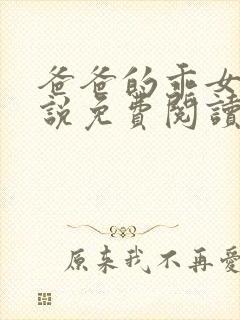 爸爸的乖女
說免費閱讀
原來我不再愛